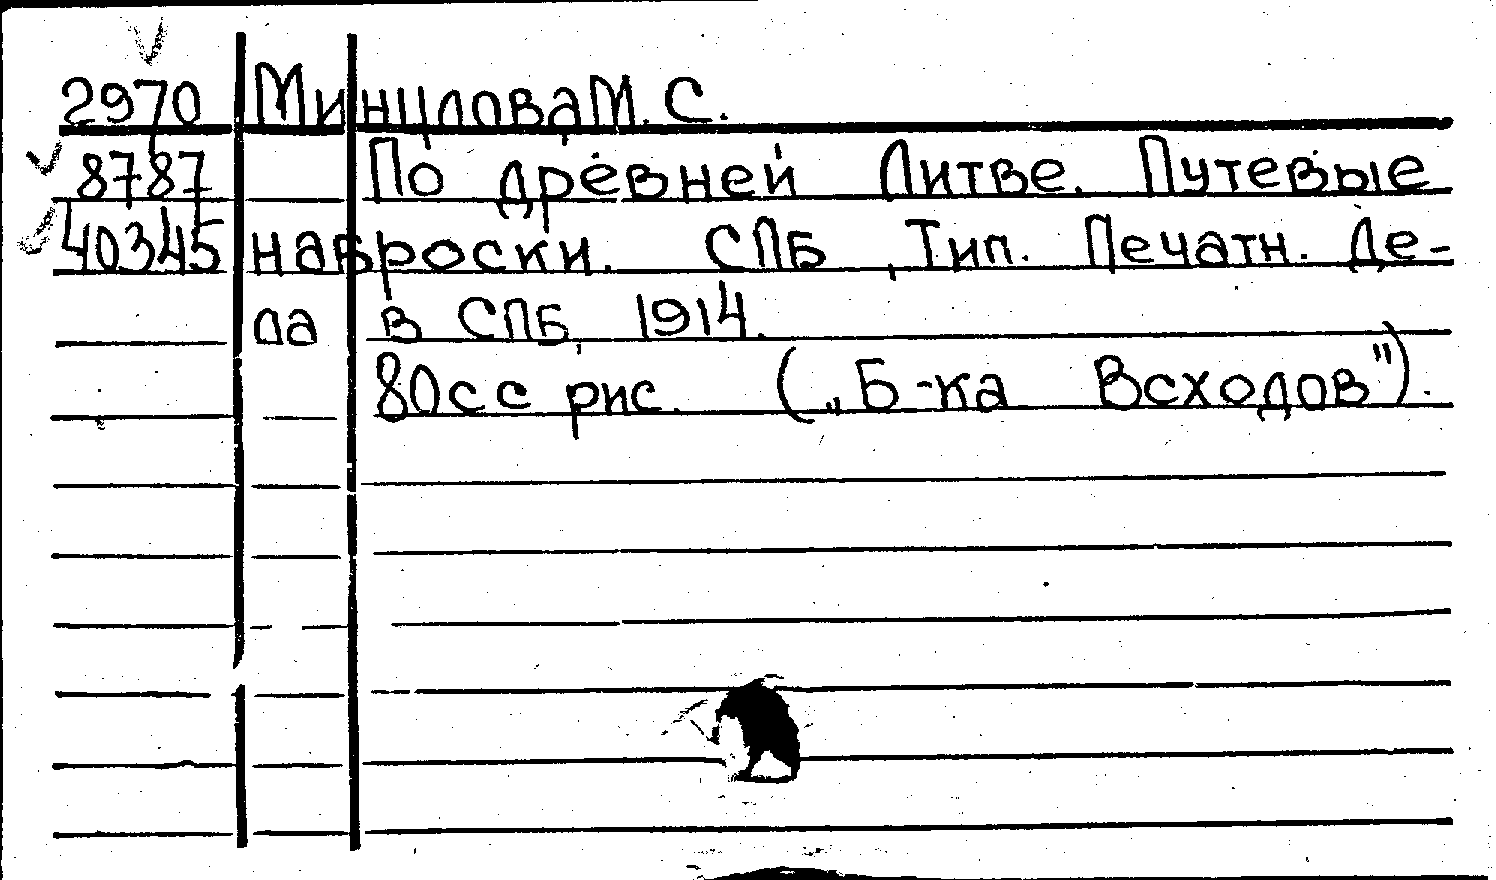 2970 Минцлова М. С.
8787 По древней Литве. Путевые
40345 наброски. СПБ, Тип. Печатн. Де-
ла в СПБ, 1914.
80с с рис. („Б-ка Всходов").